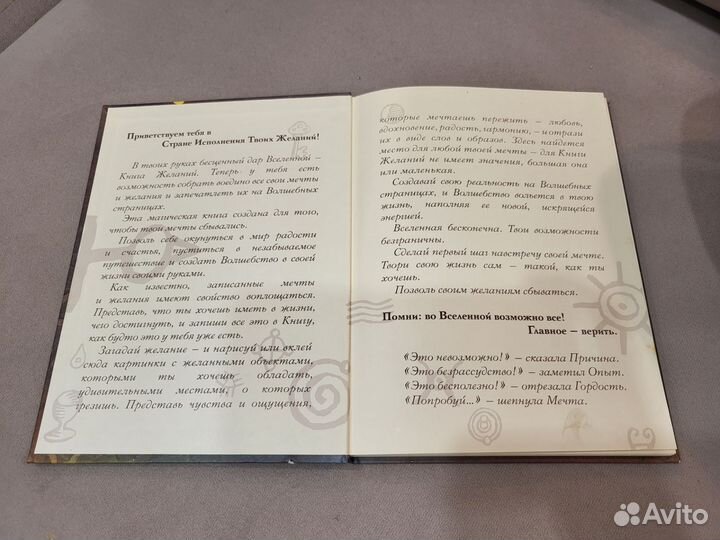 Приветствуем тебя в
Стране Исполнения Твоих Желаний!
В твоих руках бесценный дар Вселенной –
Книга Желаний. Теперь у тебя есть
возможность собрать воедино все свои мечты
и желания и запечатлеть их на Волшебных
страницах.
Эта магическая книга создана для того,
чтобы твои мечты сбывались.
Позволь себе окунуться в мир радости
и счастья, пуститься в незабываемое
путешествие и создать Волшебство в своей
жизни своими руками.
Как известно, записанные мечты
и желания имеют свойство воплощаться.
Представь, что ты хочешь иметь в жизни,
чего достигнуть, и запиши все это в Книгу,
как будто это у тебя уже есть.
Загадай желание – и нарисуй или вклей
сюда картинки с желанными объектами,
которыми ты хочешь обладать,
удивительными местами, о которых
грезишь. Представь чувства и ощущения,
которые мечтаешь пережить – любовь,
вдохновение, радость, гармонию, – и отрази
их в виде слов и образов. Здесь найдется
место для любой твоей мечты – для Книги
Желаний не имеет значения, большая она
или маленькая.
Создавай свою реальность на Волшебных
страницах, и Волшебство вольется в твою
жизнь, наполняя ее новой, искрящейся
энергией.
Вселенная бесконечна. Твои возможности
безграничны.
Сделай первый шаг навстречу своей мечте.
Твори свою жизнь сам – такой, как ты
хочешь.
Позволь своим желаниям сбываться.
Помни: во Вселенной возможно все!
Главное – верить.
«Это невозможно!» – сказала Причина.
«Это безрассудство!» – заметил Опыт.
«Это бесполезно!» – отрезала Гордость.
«Попробуй...» – шепнула Мечта.
Avito